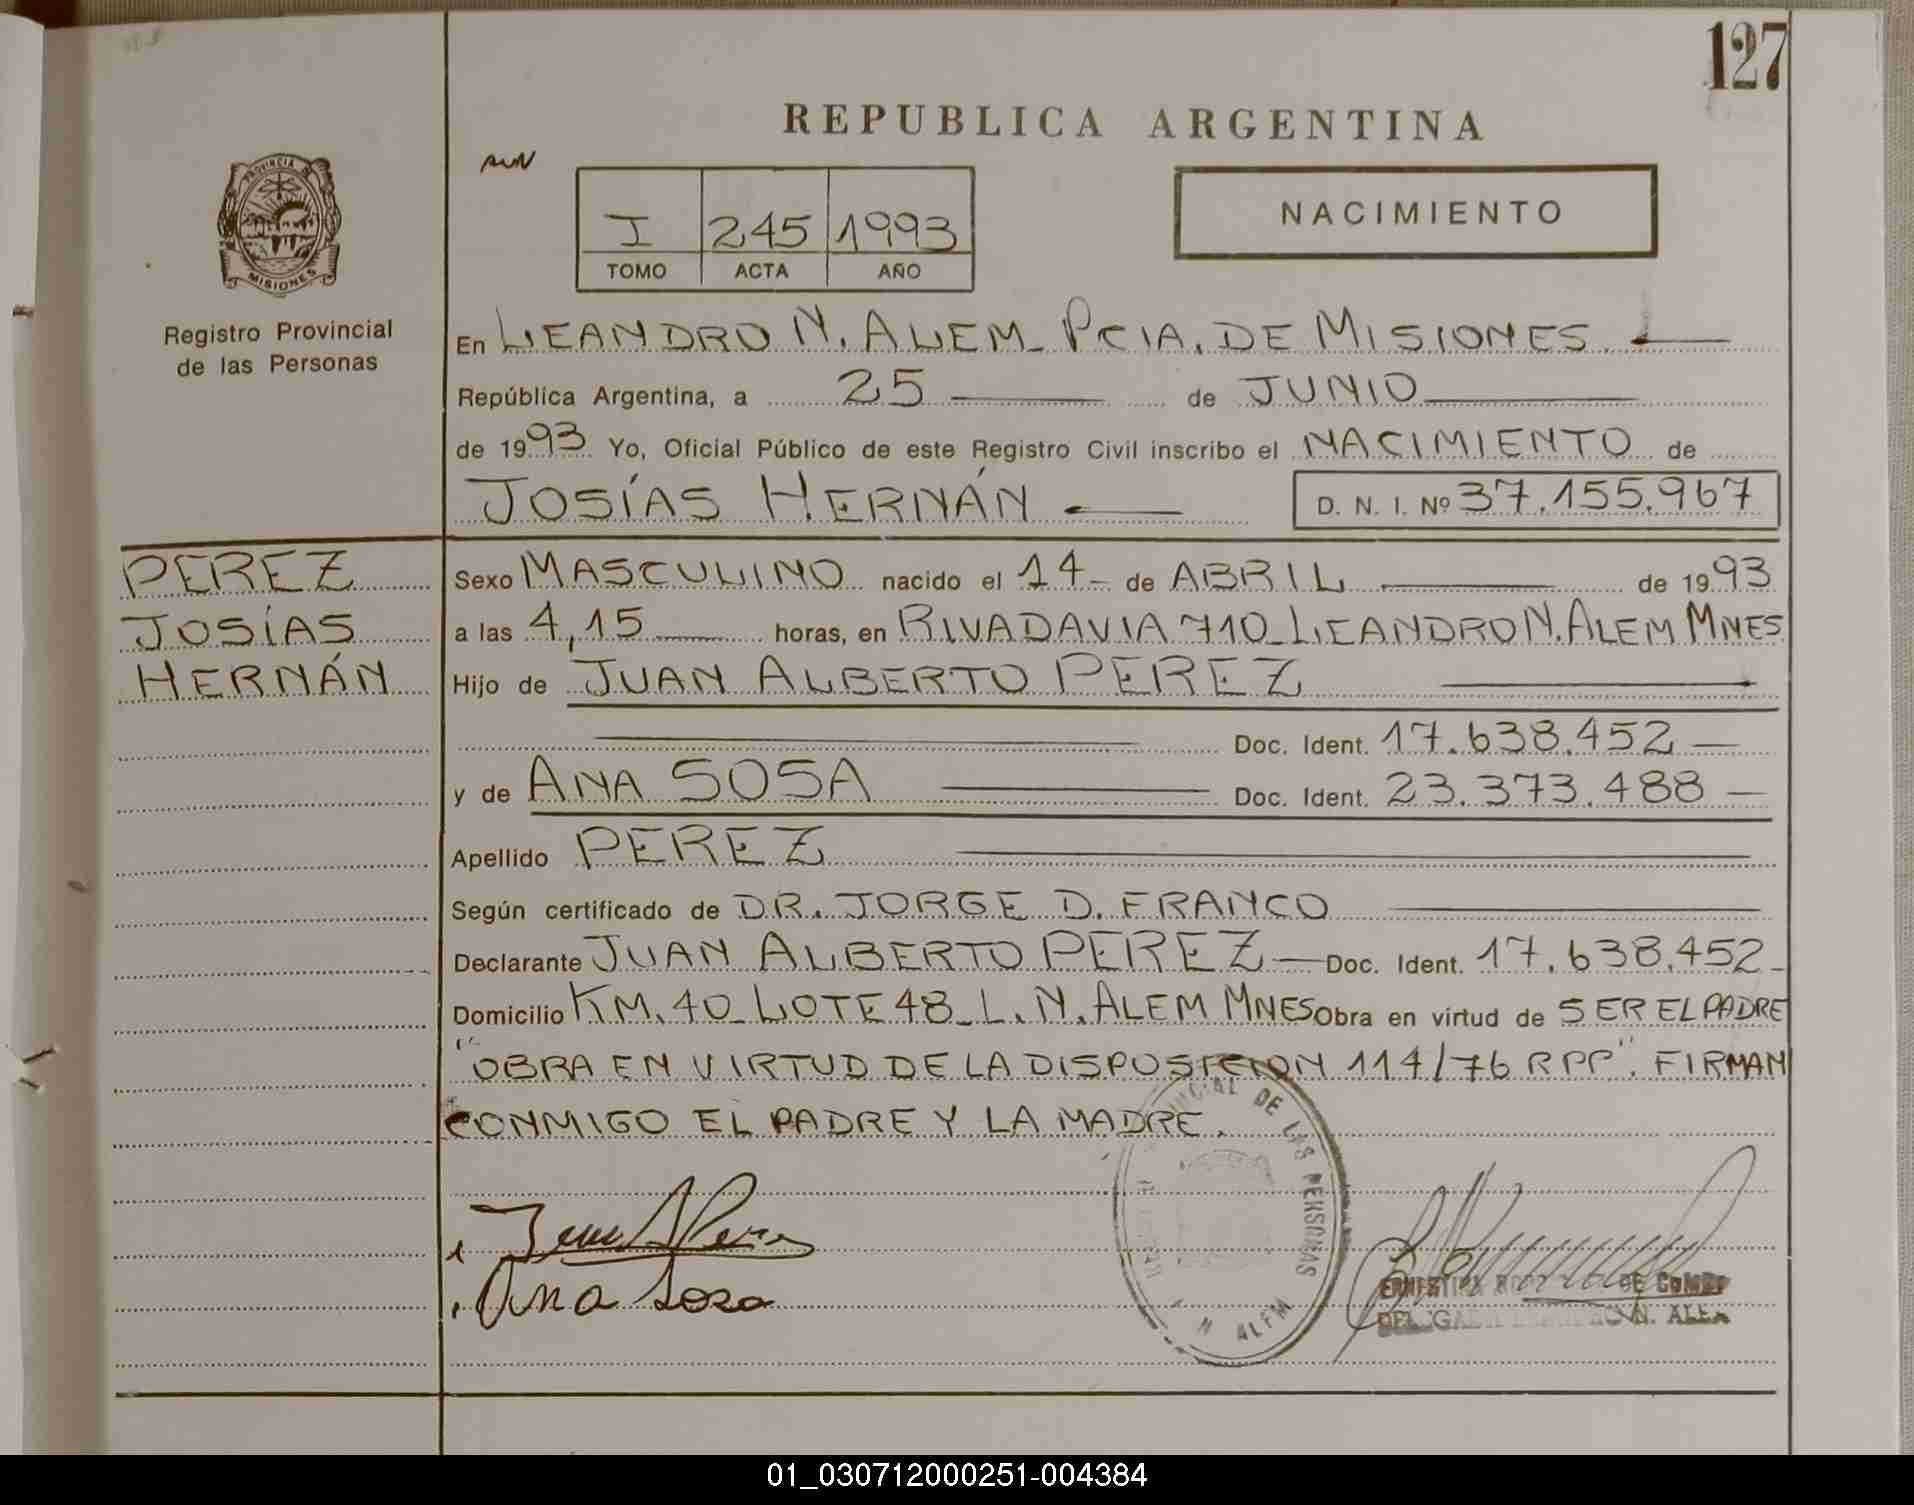 127
REPUBLICA ARGENTINA
PROVINCIA D
MISIONES
NACIMIENTO
I 245 1993
TOMO ACTA AÑO
Registro Provincial
de las Personas
En LEANDRO N. ALEM - PCIA. DE MISIONES
República Argentina, a 25 de JUNIO
de 1993 Yo, Oficial Público de este Registro Civil inscribo el NACIMIENTO de
JOSÍAS HERNÁN D. N. I. Nº 37.155.967
PEREZ
JOSÍAS
HERNÁN
Sexo MASCULINO nacido el 14 - de ABRIL de 1993
a las 4,15 horas, en RIVADAVIA 710 - LEANDRO N. ALEM MNES
Hijo de JUAN ALBERTO PEREZ
Doc. Ident. 17.638.452 -
y de ANA SOSA Doc. Ident. 23.373.488 -
Apellido PEREZ
Según certificado de DR. JORGE D. FRANCO
Declarante JUAN ALBERTO PEREZ - Doc. Ident. 17.638.452 -
Domicilio KM. 40 - LOTE 48 - L. N. ALEM MNES Obra en virtud de SER EL PADRE
"OBRA EN VIRTUD DE LA DISPOSICION 114/76 RPP". FIRMAN
CONMIGO EL PADRE Y LA MADRE.
DE LAS PERSONAS
N ALEM
Ana Sosa
DE
N. ALEM
01_030712000251-004384